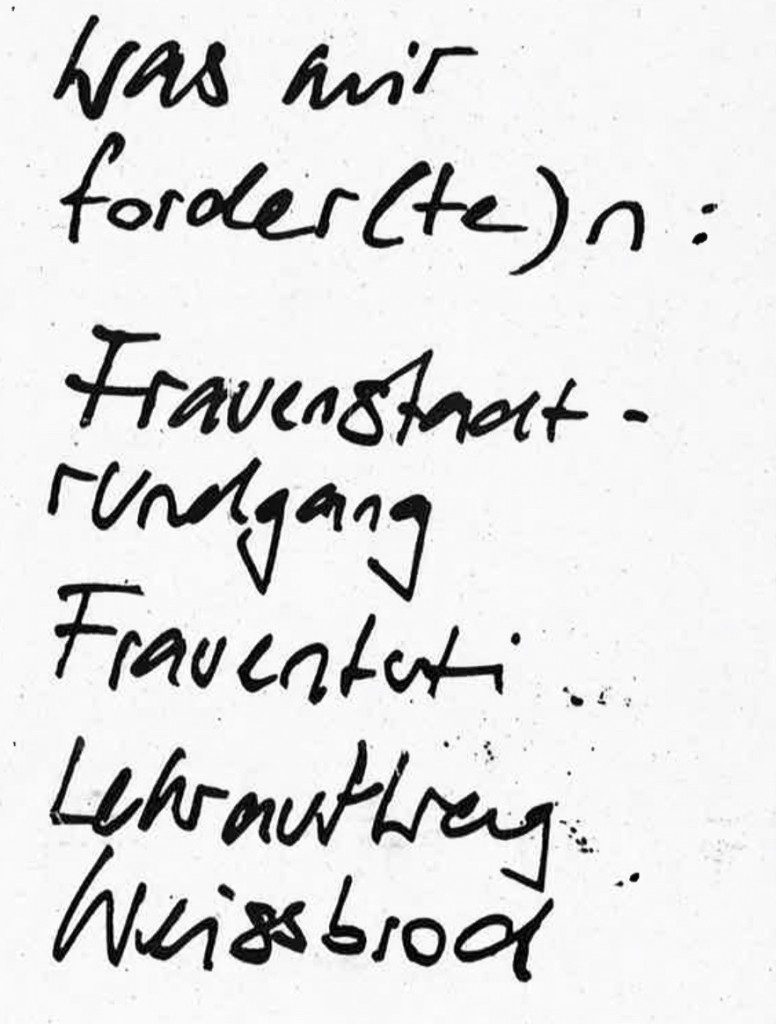 was mir
forder(te)n:
Frauenstadt-
rundgang
Frauentuti
Lehrauftrag
Weissbrod